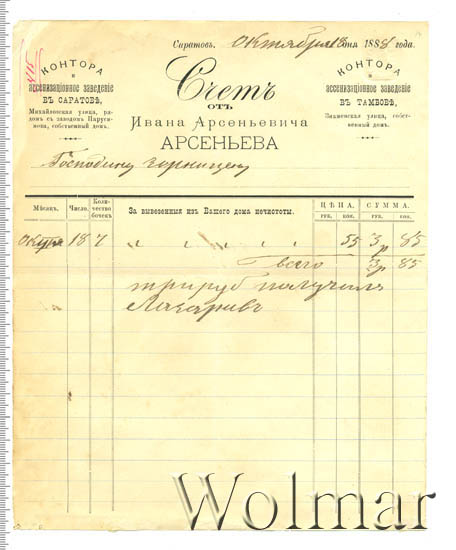 Саратовъ, Октября 18 дня 1888 года.
КОНТОРА
и
ассенизаціонное заведеніе
ВЪ САРАТОВѢ,
Михайловская улица, ря-
домъ съ заводомъ Паруси-
нова, собственный домъ.
Счетъ
ОТЪ
Ивана Арсеньевича
АРСЕНЬЕВА
КОНТОРА
и
ассенизаціонное заведеніе
ВЪ ТАМБОВѢ,
улица, собст-
венный домъ.
Господину
Мѣсяцъ. Число. Коли-чество бочекъ За вывезенныя изъ Вашего дома нечистоты. ЦѢНА. РУБ. КОП. СУММА. РУБ. КОП.
18 7 " " " " " " 55 3 р 85
всего 3 р 85
три руб получилъ
Wolmar